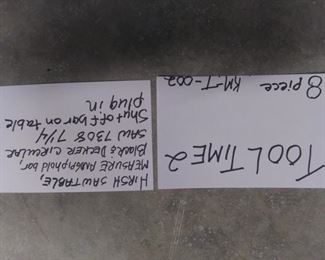 TOOLTIME 2
8 piece KM-T-002
HIRSH SAWTABLE,
MEASURE AND GRIPHOLD bar,
Black & DECKER CIRCULAR
SAW 7308 7 1/4
Shut off bar on table
plug in